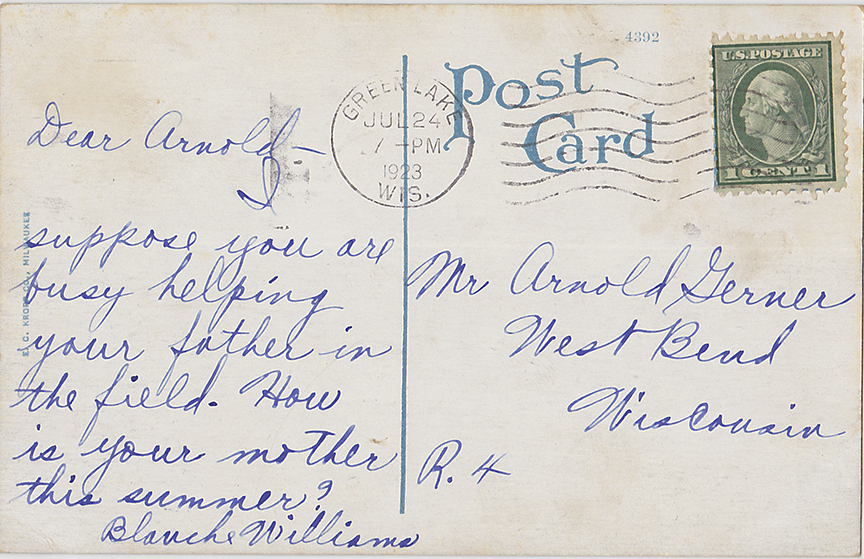 4392
Post
Card
U.S. POSTAGE
1 CENT 1
GREEN LAKE
JUL 24
7 -PM
1923
WIS.
Dear Arnold—
I
suppose you are
busy helping
your father in
the field. How
is your mother
this summer?
Blanche Williams
Mr Arnold Gerner
West Bend
Wisconsin
R. 4
E. C. KROPP CO., MILWAUKEE